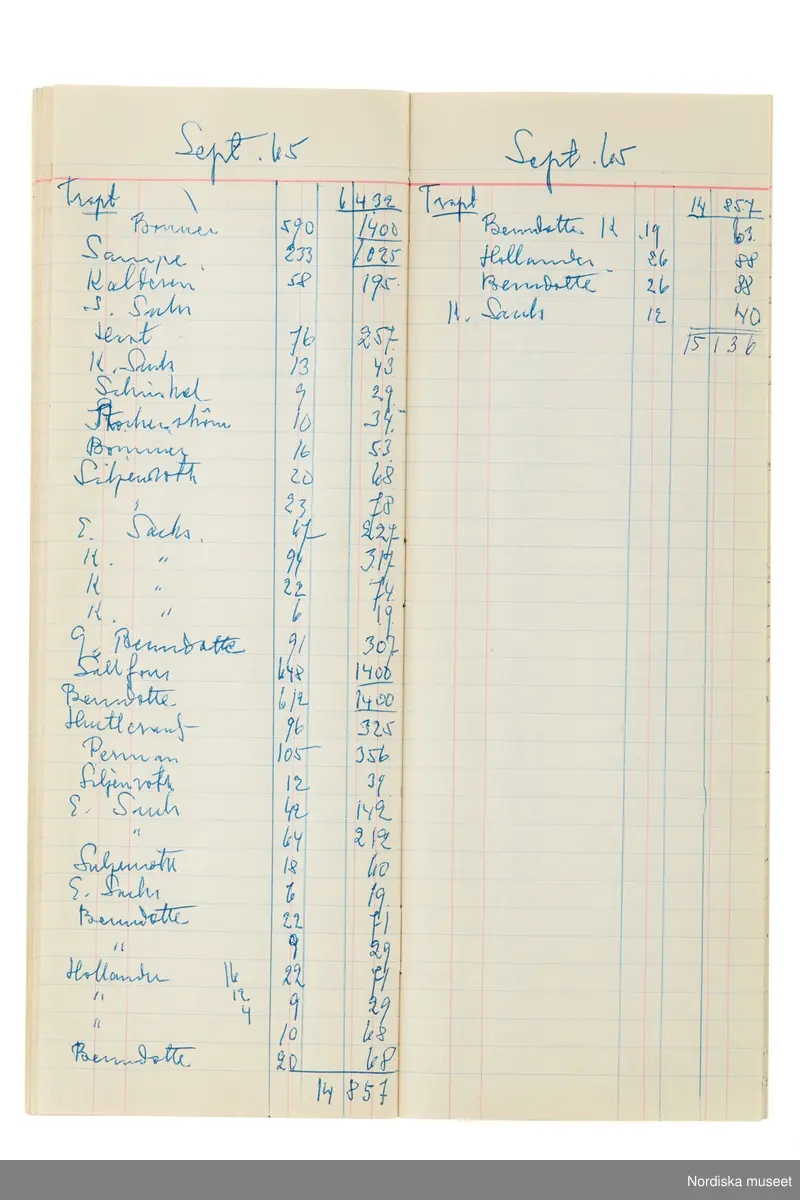 Sept. 65
Trspt 6 432
Bonnier 590 1400
Sampe 233 1025
Kalderén 58 195
S. Sachs
76 257
K. Sachs 13 43
Schinkel 9 29
Stockenström 10 34
Bommer 16 53
Liljenroth 20 68
" 23 78
E. Sachs. 67 227
K. " 94 317
K " 22 74
K. " 6 19
G. Bernadotte 91 307
648 1400
Bernadotte 612 1400
96 325
Perman 105 356
Liljenroth 12 39
E. Sachs 42 142
" 64 212
Liljenroth 18 60
E. Sachs 6 19
Bernadotte 22 71
" 9 29
Hollander 16 22 71
" 12 9 29
4
" 10 68
Bernadotte 20 68
14 857
Sept. 65
Trspt 14 857
Bernadotte K 19 63
Hollander 26 88
Bernadotte 26 88
K. Sachs 12 40
15 136
Nordiska museet